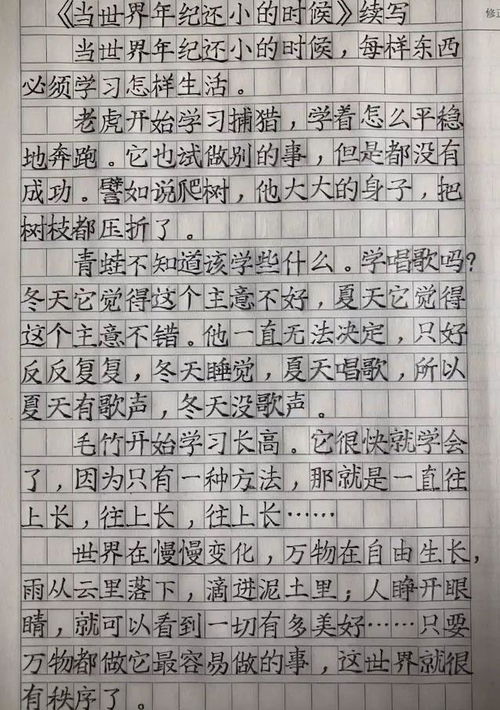 《当世界年纪还小的时候》续写
当世界年纪还小的时候，每样东西
必须学习怎样生活。
老虎开始学习捕猎，学着怎么平稳
地奔跑。它也试做别的事，但是都没有
成功。譬如说爬树，他大大的身子，把
树枝都压折了。
青蛙不知道该学些什么。学唱歌吗？
冬天它觉得这个主意不好，夏天它觉得
这个主意不错。他一直无法决定，只好
反反复复，冬天睡觉，夏天唱歌，所以
夏天有歌声，冬天没歌声。
毛竹开始学习长高。它很快就学会
了，因为只有一种方法，那就是一直往
上长，往上长，往上长……
世界在慢慢变化，万物在自由生长，
雨从云里落下，滴进泥土里；人睁开眼
睛，就可以看到一切有多美好……只要
万物都做它最容易做的事，这世界就很
有秩序了。